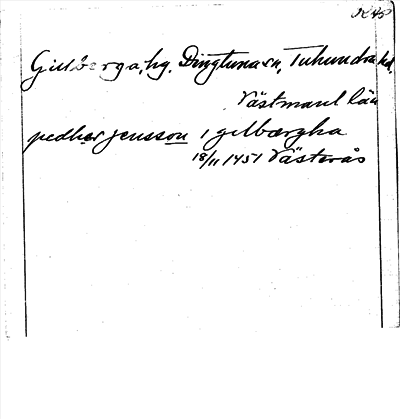 Gillberga, hg. Dingtuna sn, Tuhundra hd,
Västmanl län
pedher jensson i gilbærgha
18/11 1451 Västerås